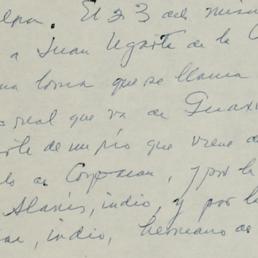 El 23 del
a Juan Ugarte de la C
una loma que se llama
real que va de Guax
te de un río que viene d
lo de Corpacan, y por la
Alanís, indio, y por l
indio, hermano de